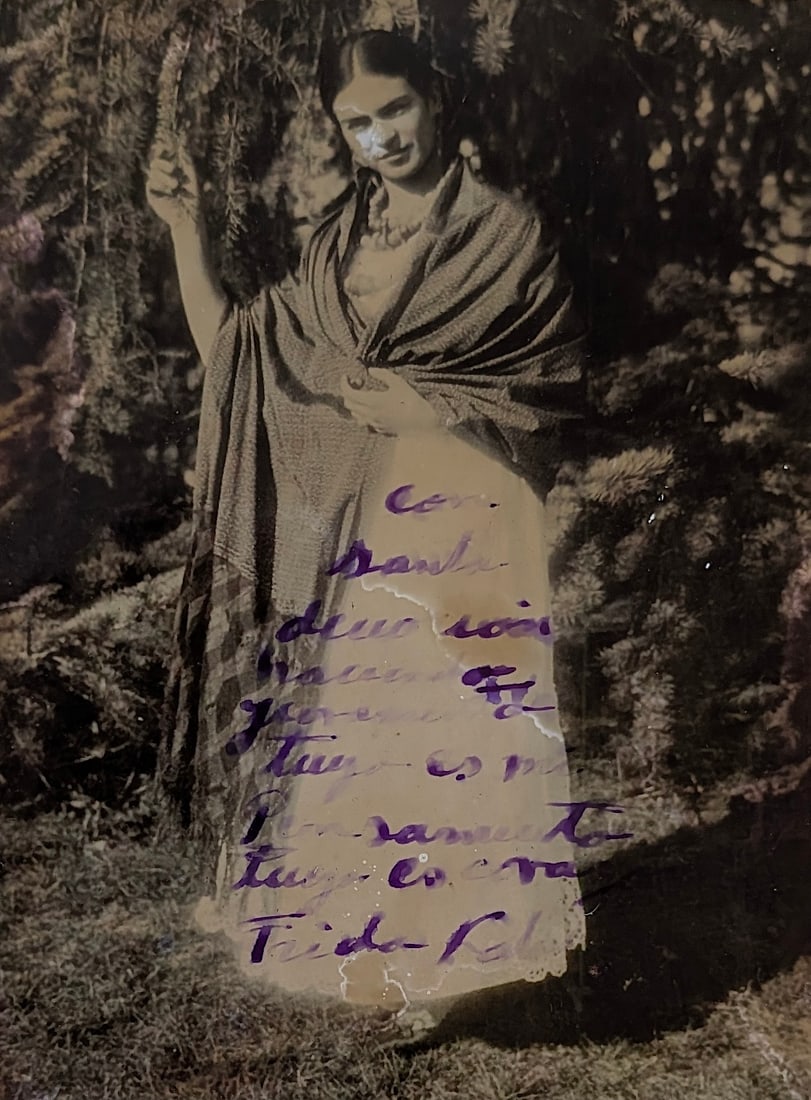 con
santa
devoción
haciendo
tuyo es mi
Pensamiento
tuyo es cora
Frida